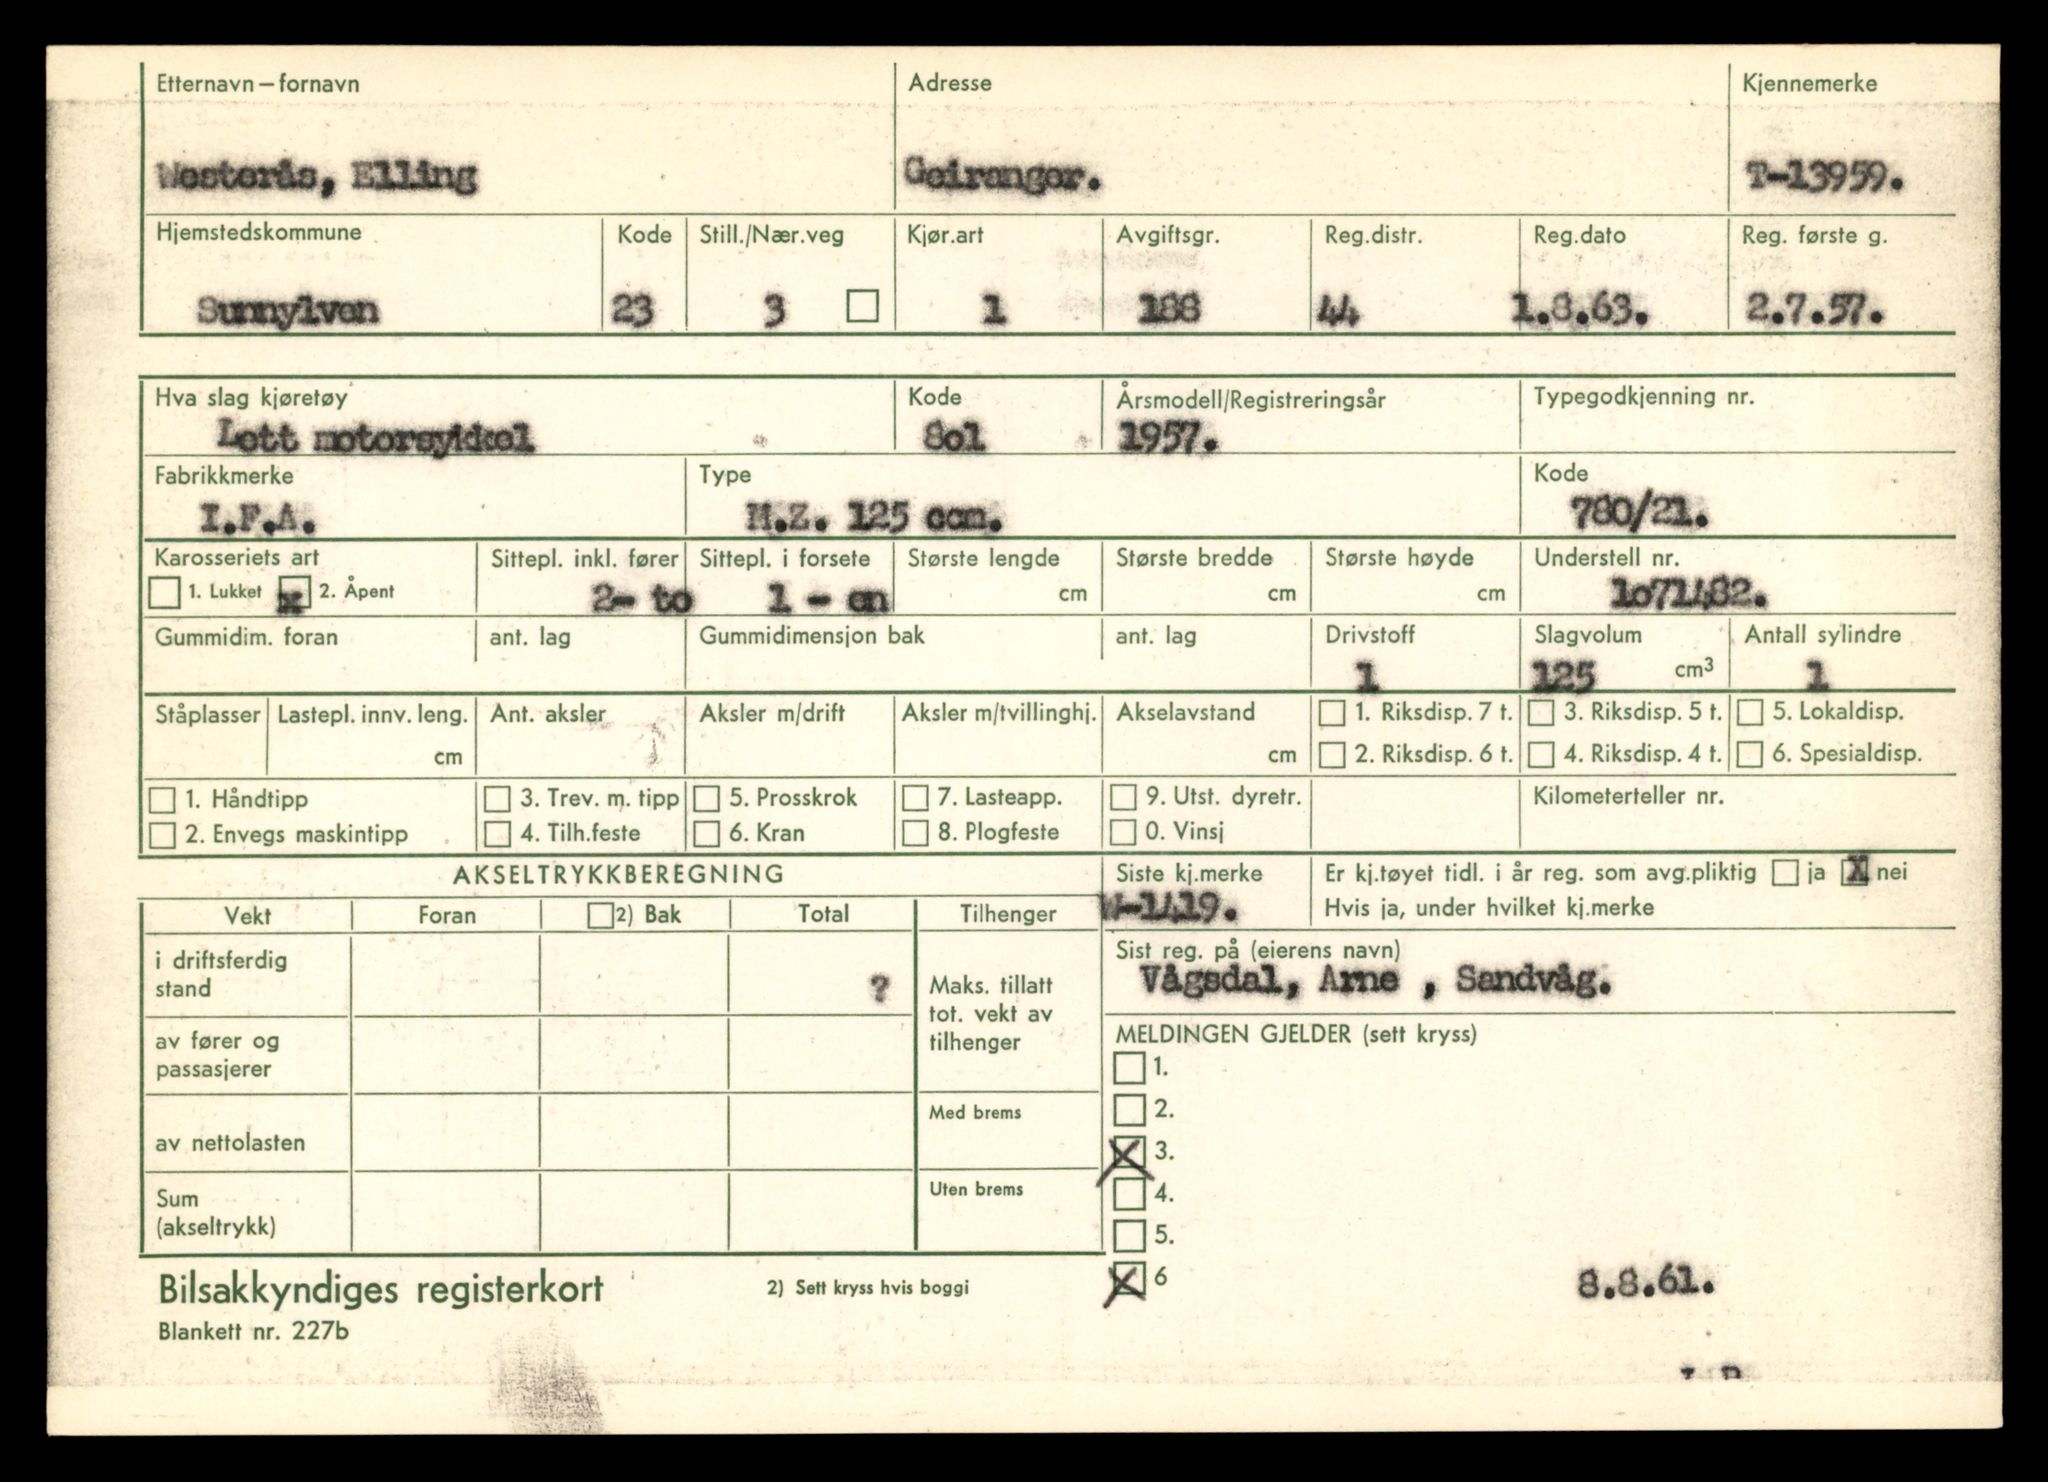 Etternavn – fornavn Adresse Kjennemerke
Westerås, Elling Geiranger. T-13959.
Hjemstedskommune Kode Still./Nær.veg Kjør.art Avgiftsgr. Reg.distr. Reg.dato Reg. første g.
Sunnylven 23 3 1 188 44 1.8.63. 2.7.57.
Hva slag kjøretøy Kode Årsmodell/Registreringsår Typegodkjenning nr.
Lett motorsykkel 8o1 1957.
Fabrikkmerke Type Kode
I.F.A. M.Z. 125 ccm. 780/21.
Karosseriets art Sittepl. inkl. fører Sittepl. i forsete Største lengde Største bredde Største høyde Understell nr.
1. Lukket x 2. Åpent 2- to 1 - en cm cm cm 1o71482.
Gummidim. foran ant. lag Gummidimensjon bak ant. lag Drivstoff Slagvolum Antall sylindre
1 125 cm³ 1
Ståplasser Lastepl. innv. leng. Ant. aksler Aksler m/drift Aksler m/tvillinghj. Akselavstand 1. Riksdisp. 7 t. 3. Riksdisp. 5 t. 5. Lokaldisp.
cm cm 2. Riksdisp. 6 t. 4. Riksdisp. 4 t. 6. Spesialdisp.
1. Håndtipp 3. Trev. m. tipp 5. Prosskrok 7. Lasteapp. 9. Utst. dyretr. Kilometerteller nr.
2. Envegs maskintipp 4. Tilh.feste 6. Kran 8. Plogfeste 0. Vinsj
AKSELTRYKKBEREGNING Siste kj.merke Er kj.tøyet tidl. i år reg. som avg.pliktig ja X nei
Vekt Foran 2) Bak Total Tilhenger W-1419. Hvis ja, under hvilket kj.merke
i driftsferdig stand ? Maks. tillatt tot. vekt av tilhenger
Sist reg. på (eierens navn)
Vågsdal, Arne , Sandvåg.
av fører og passasjerer
MELDINGEN GJELDER (sett kryss)
1.
2.
av nettolasten Med brems X 3.
Sum (akseltrykk) Uten brems 4.
5.
X 6 8.8.61.
Bilsakkyndiges registerkort 2) Sett kryss hvis boggi
Blankett nr. 227b